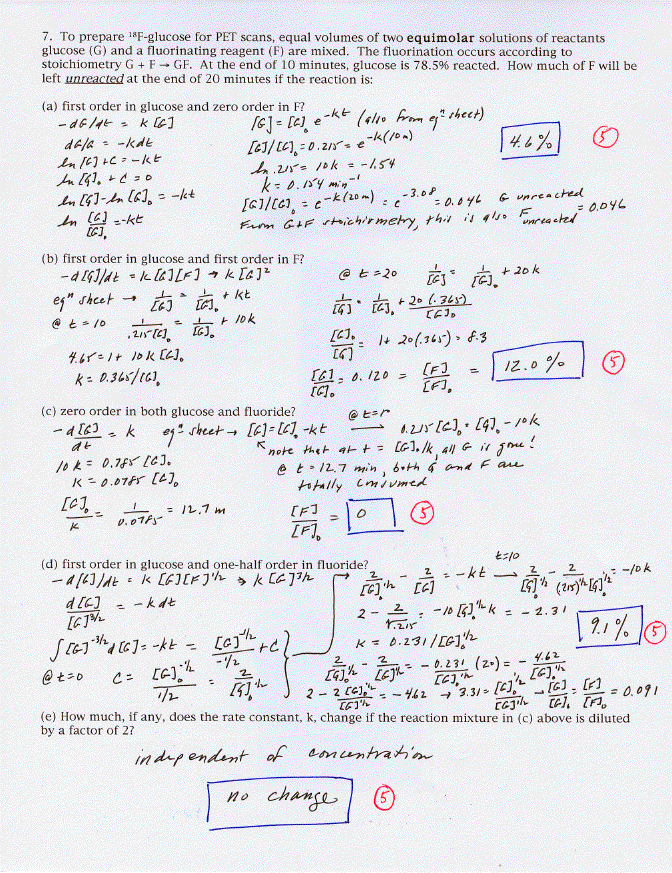 7. To prepare ¹⁸F-glucose for PET scans, equal volumes of two equimolar solutions of reactants
glucose (G) and a fluorinating reagent (F) are mixed. The fluorination occurs according to
stoichiometry G + F → GF. At the end of 10 minutes, glucose is 78.5% reacted. How much of F will be
left unreacted at the end of 20 minutes if the reaction is:
(a) first order in glucose and zero order in F?
-dG/dt = k[G]
dG/G = -kdt
ln[G] + C = -kt
ln[G]₀ + C = 0
ln[G]-ln[G]₀ = -kt
ln [G]/[G]₀ = -kt
[G] = [G]₀ e^-kt (also from eqⁿ sheet)
[G]/[G]₀ = 0.215 = e^-k(10m)
ln .215 = 10k = -1.54
k = 0.154 min⁻¹
[G]/[G]₀ = e^-k(20m) = e^-3.08 = 0.046 G unreacted
From G+F stoichiometry, this is also F unreacted = 0.046
4.6%
5
(b) first order in glucose and first order in F?
-d[G]/dt = k[G][F] → k[G]²
eqⁿ sheet → 1/[G] = 1/[G]₀ + kt
@ t = 10 1/.215[G]₀ = 1/[G]₀ + 10k
4.65 = 1 + 10k[G]₀
k = 0.365/[G]₀
@ t = 20 1/[G] = 1/[G]₀ + 20k
1/[G] = 1/[G]₀ + 20(.365)/[G]₀
[G]₀/[G] = 1 + 20(.365) = 8.3
[G]/[G]₀ = 0.120 = [F]/[F]₀ = 12.0%
5
(c) zero order in both glucose and fluoride?
-d[G]/dt = k eqⁿ sheet → [G] = [G]₀ - kt
10k = 0.785[G]₀
k = 0.0785[G]₀
[G]₀/k = 1/0.0785 = 12.7 m
→ 0.215[G]₀ = [G]₀ - 10k
note that at t = [G]₀/k, all G is gone!
@ t = 12.7 min, both G and F are
totally consumed
[F]/[F]₀ = 0
5
(d) first order in glucose and one-half order in fluoride?
-d[G]/dt = k[G][F]^1/2 → k[G]^3/2
d[G]/[G]^3/2 = -kdt
∫[G]^-3/2 d[G] = -kt = [G]^-1/2/-1/2 + C
@ t=0 C = [G]₀^-1/2/1/2 = 2/[G]₀^1/2
t=10
2/[G]₀^1/2 - 2/[G]^1/2 = -kt → 2/[G]₀^1/2 - 2/(.215)^1/2[G]₀^1/2 = -10k
2 - 2/√.215 = -10[G]₀^1/2 k = -2.31
k = 0.231/[G]₀^1/2
2/[G]₀^1/2 - 2/[G]^1/2 = -0.231/[G]₀^1/2 (20) = -4.62/[G]₀^1/2
2 - 2[G]₀^1/2/[G]^1/2 = -4.62 → 3.31 = [G]₀^1/2/[G]^1/2 → [G]/[G]₀ = [F]/[F]₀ = 0.091
9.1%
5
(e) How much, if any, does the rate constant, k, change if the reaction mixture in (c) above is diluted
by a factor of 2?
independent of concentration
no change
5